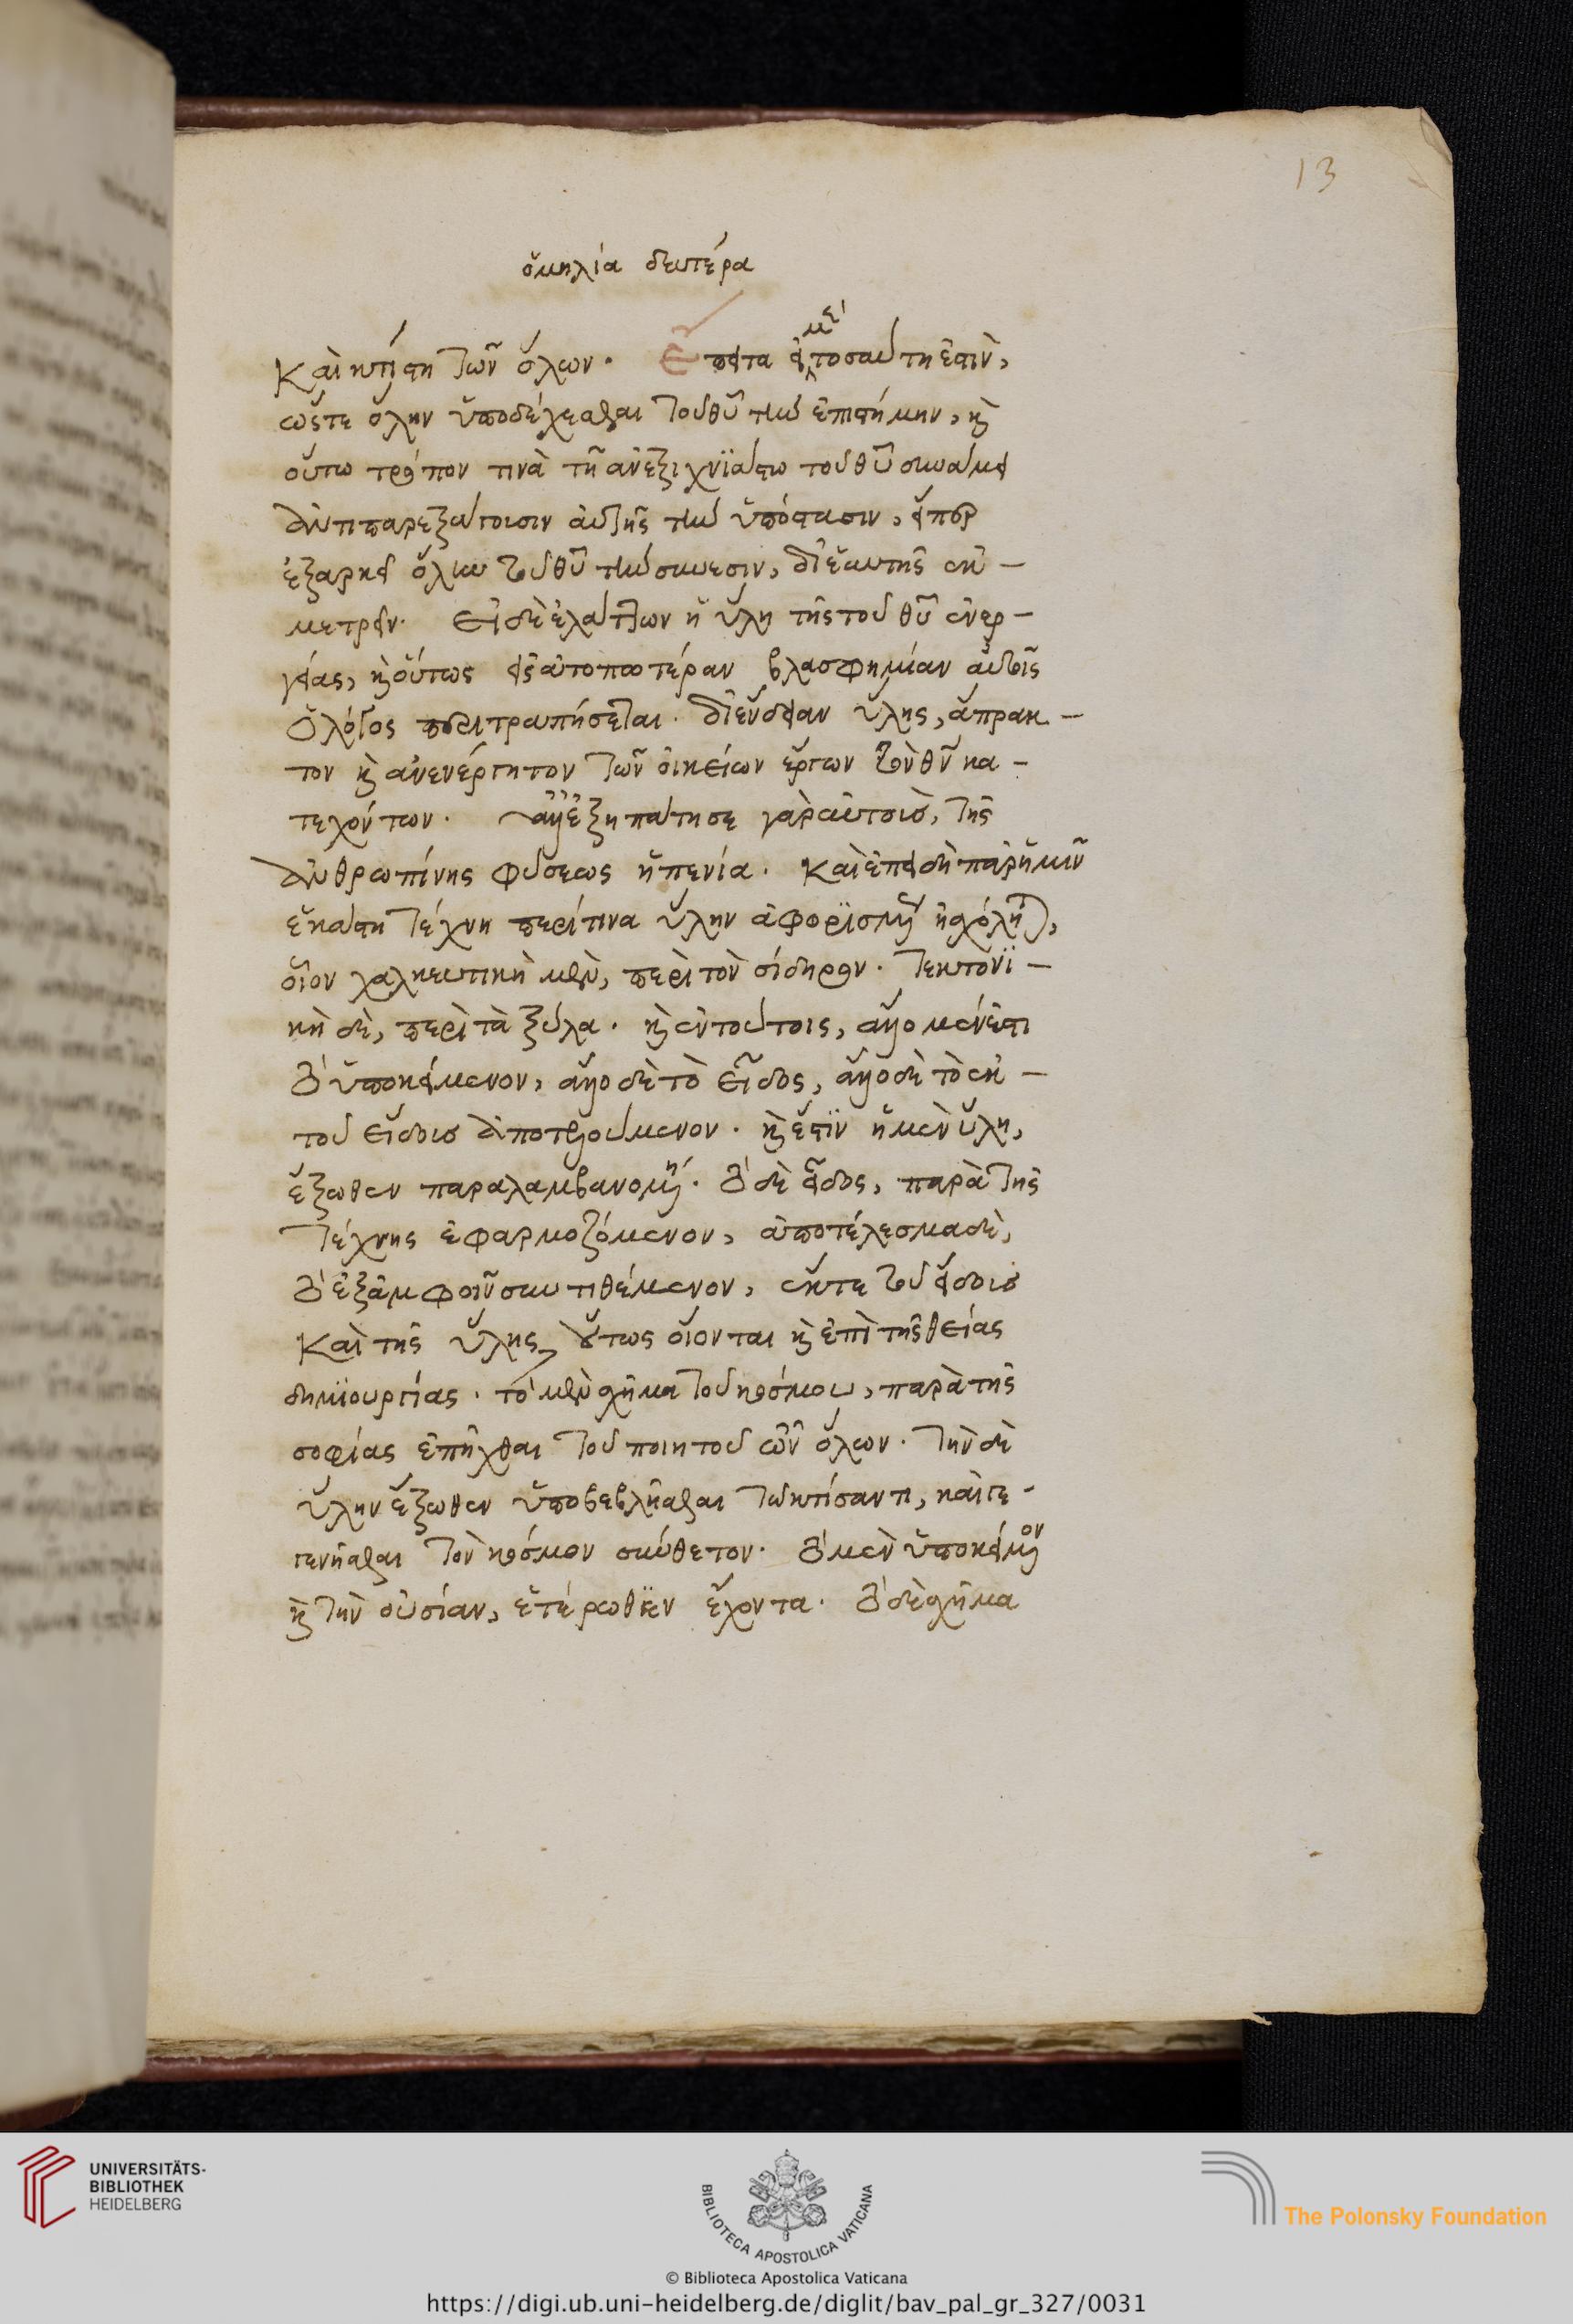 13
ὁμηλία δευτέρα
Καὶ κτίστη τῶν ὅλων. Ἔπειτα εἰ μὲν τοσαύτη ἐστὶν,
ὥστε ὅλην ὑποδέχεσθαι τοῦ θῦ τὴν ἐπιστήμην, κὶ
οὕτω τρόπον τινὰ τῇ ἀνεξιχνϊάστω τοῦ θῦ δυνάμει
ἀντιπαρεξάγουσιν αὐτῆς τὴν ὑπόστασιν, εἴπερ
ἐξαρκεῖ ὅλην τοῦ θῦ τὴν σύνεσιν, δι' ἑαυτῆς ἐκ-
μετρεῖν. Εἰ δὲ ἐλάττων ἡ ὕλη τῆς τοῦ θῦ ἐνερ-
γείας, κὶ οὕτως εἰς ἀτοπωτέραν βλασφημίαν αὐτοῖς
ὁ λόγος περιτραπήσεται. δι' ἔνδειαν ὕλης, ἄπρακ-
τον κὶ ἀνενέργητον τῶν οἰκείων ἔργων τὸν θν κα-
τεχόντων. ἀλλ' ἐξηπάτησε γὰρ αὐτοὺς, τῆς
ἀνθρωπίνης φύσεως ἡ πενία. Καὶ ἐπειδὴ παρ' ἡμῖν
ἑκάστη τέχνη περί τινα ὕλην ἀφορϊσμένως ἠσχόληται,
οἷον χαλκευτικὴ μὲν, περὶ τὸν σίδηρον. τεκτονϊ-
κὴ δὲ, περὶ τὰ ξύλα. κὶ ἐν τούτοις, ἄλλο μέν ἐστι
τὸ ὑποκείμενον, ἄλλο δὲ τὸ εἶδος, ἄλλο δὲ τὸ ἐκ
τοῦ εἴδους ἀποτελούμενον. κὶ ἔστϊν ἡ μὲν ὕλη,
ἔξωθεν παραλαμβανομένη. τὸ δὲ εἶδος, παρὰ τῆς
τέχνης ἐφαρμοζόμενον, ἀποτέλεσμα δὲ,
τὸ ἐξ ἀμφοῖν συντιθέμενον, ἔκ τε τοῦ εἴδους
Καὶ τῆς ὕλης, οὕτως οἴονται κὶ ἐπὶ τῆς θείας
δημϊουργίας. τὸ μὲν σχῆμα τοῦ κόσμου, παρὰ τῆς
σοφίας ἐπῆχθαι τοῦ ποιητοῦ τῶν ὅλων. τὴν δὲ
ὕλην ἔξωθεν ὑποβεβλῆσθαι τῷ κτίσαντι, καὶ γε-
γενῆσθαι τὸν κόσμον σύνθετον. τὸ μὲν ὑποκείμενον
κὶ τὴν οὐσίαν, ἑτέρωθεν ἔχοντα. τὸ δὲ σχῆμα
UNIVERSITÄTS-
BIBLIOTHEK
HEIDELBERG
BIBLIOTECA APOSTOLICA VATICANA
The Polonsky Foundation
© Biblioteca Apostolica Vaticana
https://digi.ub.uni-heidelberg.de/diglit/bav_pal_gr_327/0031